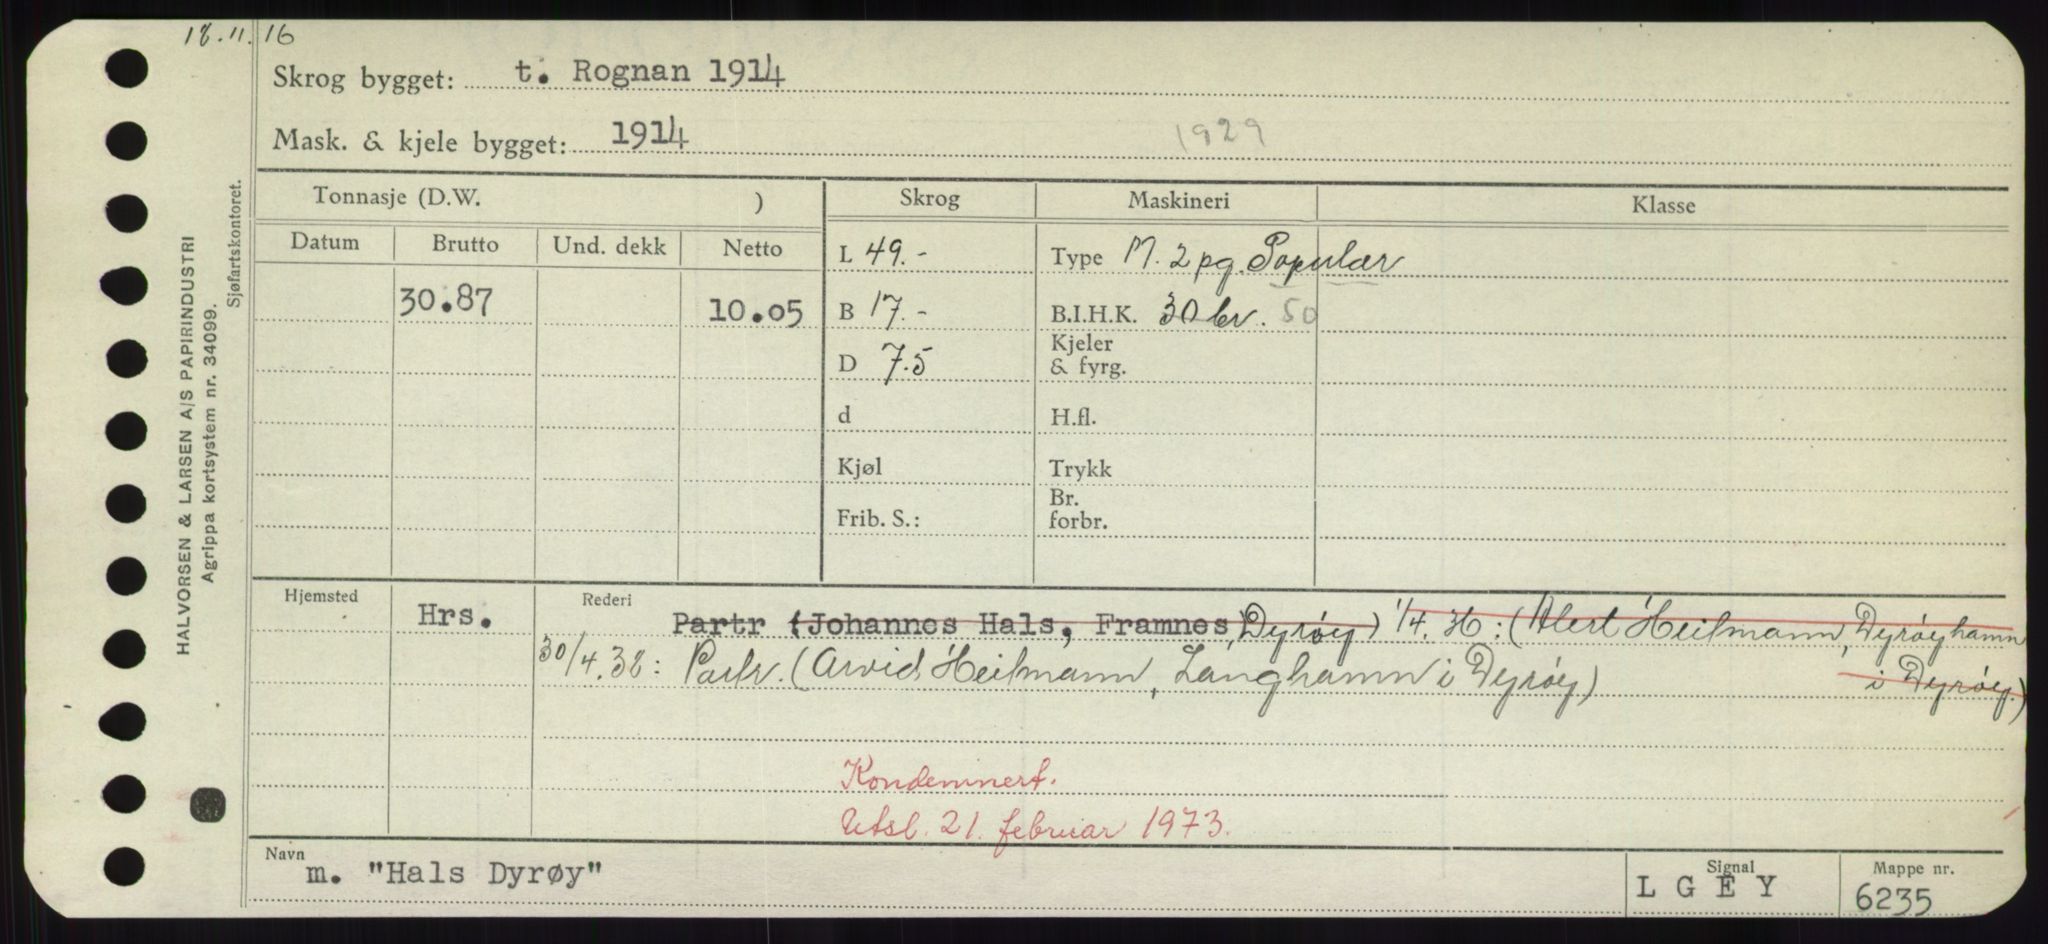 18.11.16
Skrog bygget: t. Rognan 1914
Mask. & kjele bygget: 1914 1929
Tonnasje (D.W. ) Skrog Maskineri Klasse
Datum Brutto Und. dekk Netto
L 49.- Type M. 2 pg. Populær
30.87 10.05 B 17.- B.I.H.K. 30 br. 50
D 7.5 Kjeler & fyrg.
d H.fl.
Kjøl Trykk
Frib. S.: Br. forbr.
Hjemsted Hrs. Rederi Partr (Johannes Hals, Framnes, Dyrøy) 1/4. 36: (Alert Heilmann, Dyrøyhamn
i Dyrøy.)
30/4.38: Partr. (Arvid Heilmann, Langhamn i Dyrøy)
Kondemnert.
Utsl. 21. februar 1973.
Navn m. "Hals Dyrøy" Signal L G E Y Mappe nr. 6235
HALVORSEN & LARSEN A/S PAPIRINDUSTRI
Agrippa kortsystem nr. 34099.
Sjøfartskontoret.